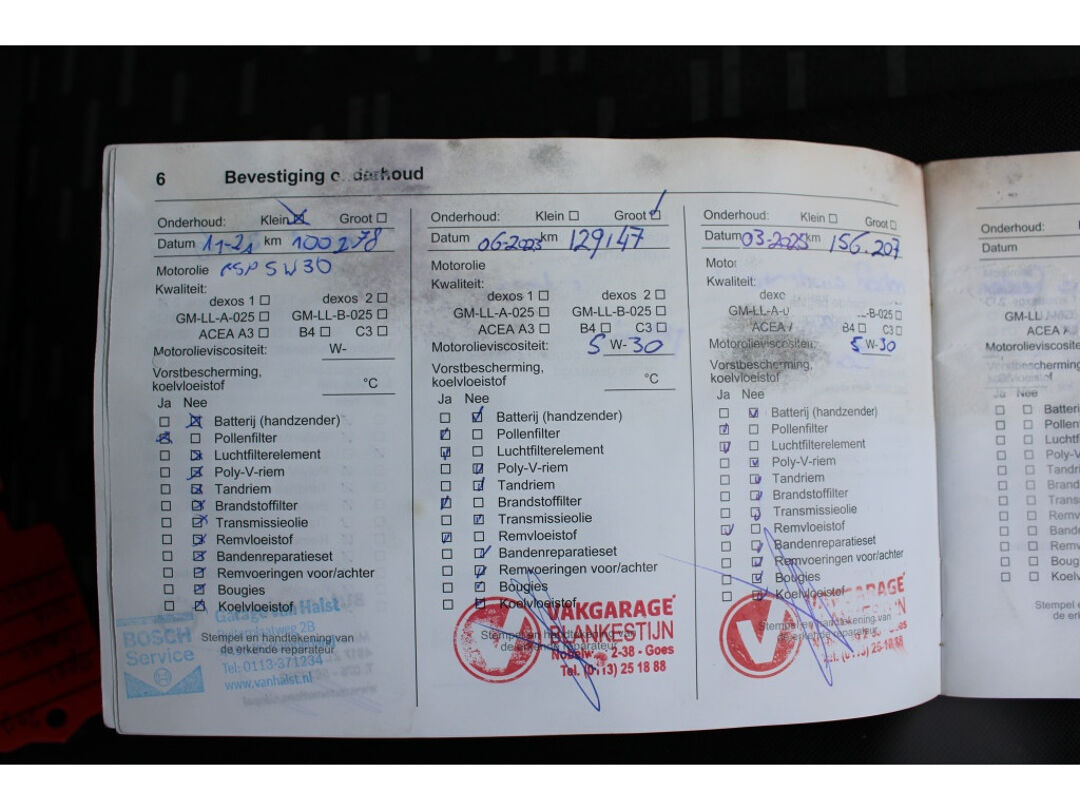 6 Bevestiging onderhoud
Onderhoud: Klein Groot
Datum 11-21 km 100278
Motorolie PSP 5W30
Kwaliteit:
dexos 1 dexos 2
GM-LL-A-025 GM-LL-B-025
ACEA A3 B4 C3
Motorolieviscositeit: W-
Vorstbescherming,
koelvloeistof °C
Ja Nee
Batterij (handzender)
Pollenfilter
Luchtfilterelement
Poly-V-riem
Tandriem
Brandstoffilter
Transmissieolie
Remvloeistof
Bandenreparatieset
Remvoeringen voor/achter
Bougies
Koelvloeistof
Garage van Halst
BOSCH
Service
Stempel en handtekening van
de erkende reparateur
Tel: 0113-371234
www.vanhalst.nl
Onderhoud: Klein Groot
Datum 06-2023 km 129147
Motorolie
Kwaliteit:
dexos 1 dexos 2
GM-LL-A-025 GM-LL-B-025
ACEA A3 B4 C3
Motorolieviscositeit: 5 W-30
Vorstbescherming,
koelvloeistof °C
Ja Nee
Batterij (handzender)
Pollenfilter
Luchtfilterelement
Poly-V-riem
Tandriem
Brandstoffilter
Transmissieolie
Remvloeistof
Bandenreparatieset
Remvoeringen voor/achter
Bougies
Koelvloeistof
VAKGARAGE
BLANKESTIJN
Stempel en handtekening van
de erkende reparateur
2-38 - Goes
Tel. (0113) 25 18 88
Onderhoud: Klein Groot
Datum 03-2025 km 156.207
Motor
Kwaliteit:
GM-LL-A-0 -B-025
ACEA B4 C3
Motorolieviscositeit: 5 W-30
Vorstbescherming,
koelvloeistof
Ja Nee
Batterij (handzender)
Pollenfilter
Luchtfilterelement
Poly-V-riem
Tandriem
Brandstoffilter
Transmissieolie
Remvloeistof
Bandenreparatieset
Remvoeringen voor/achter
Bougies
Koelvloeistof
VAKGARAGE
Stempel en handtekening van
de erkende reparateur
Onderhoud:
Datum
GM-LL
ACEA
Motorolieviscositeit
Ja Nee